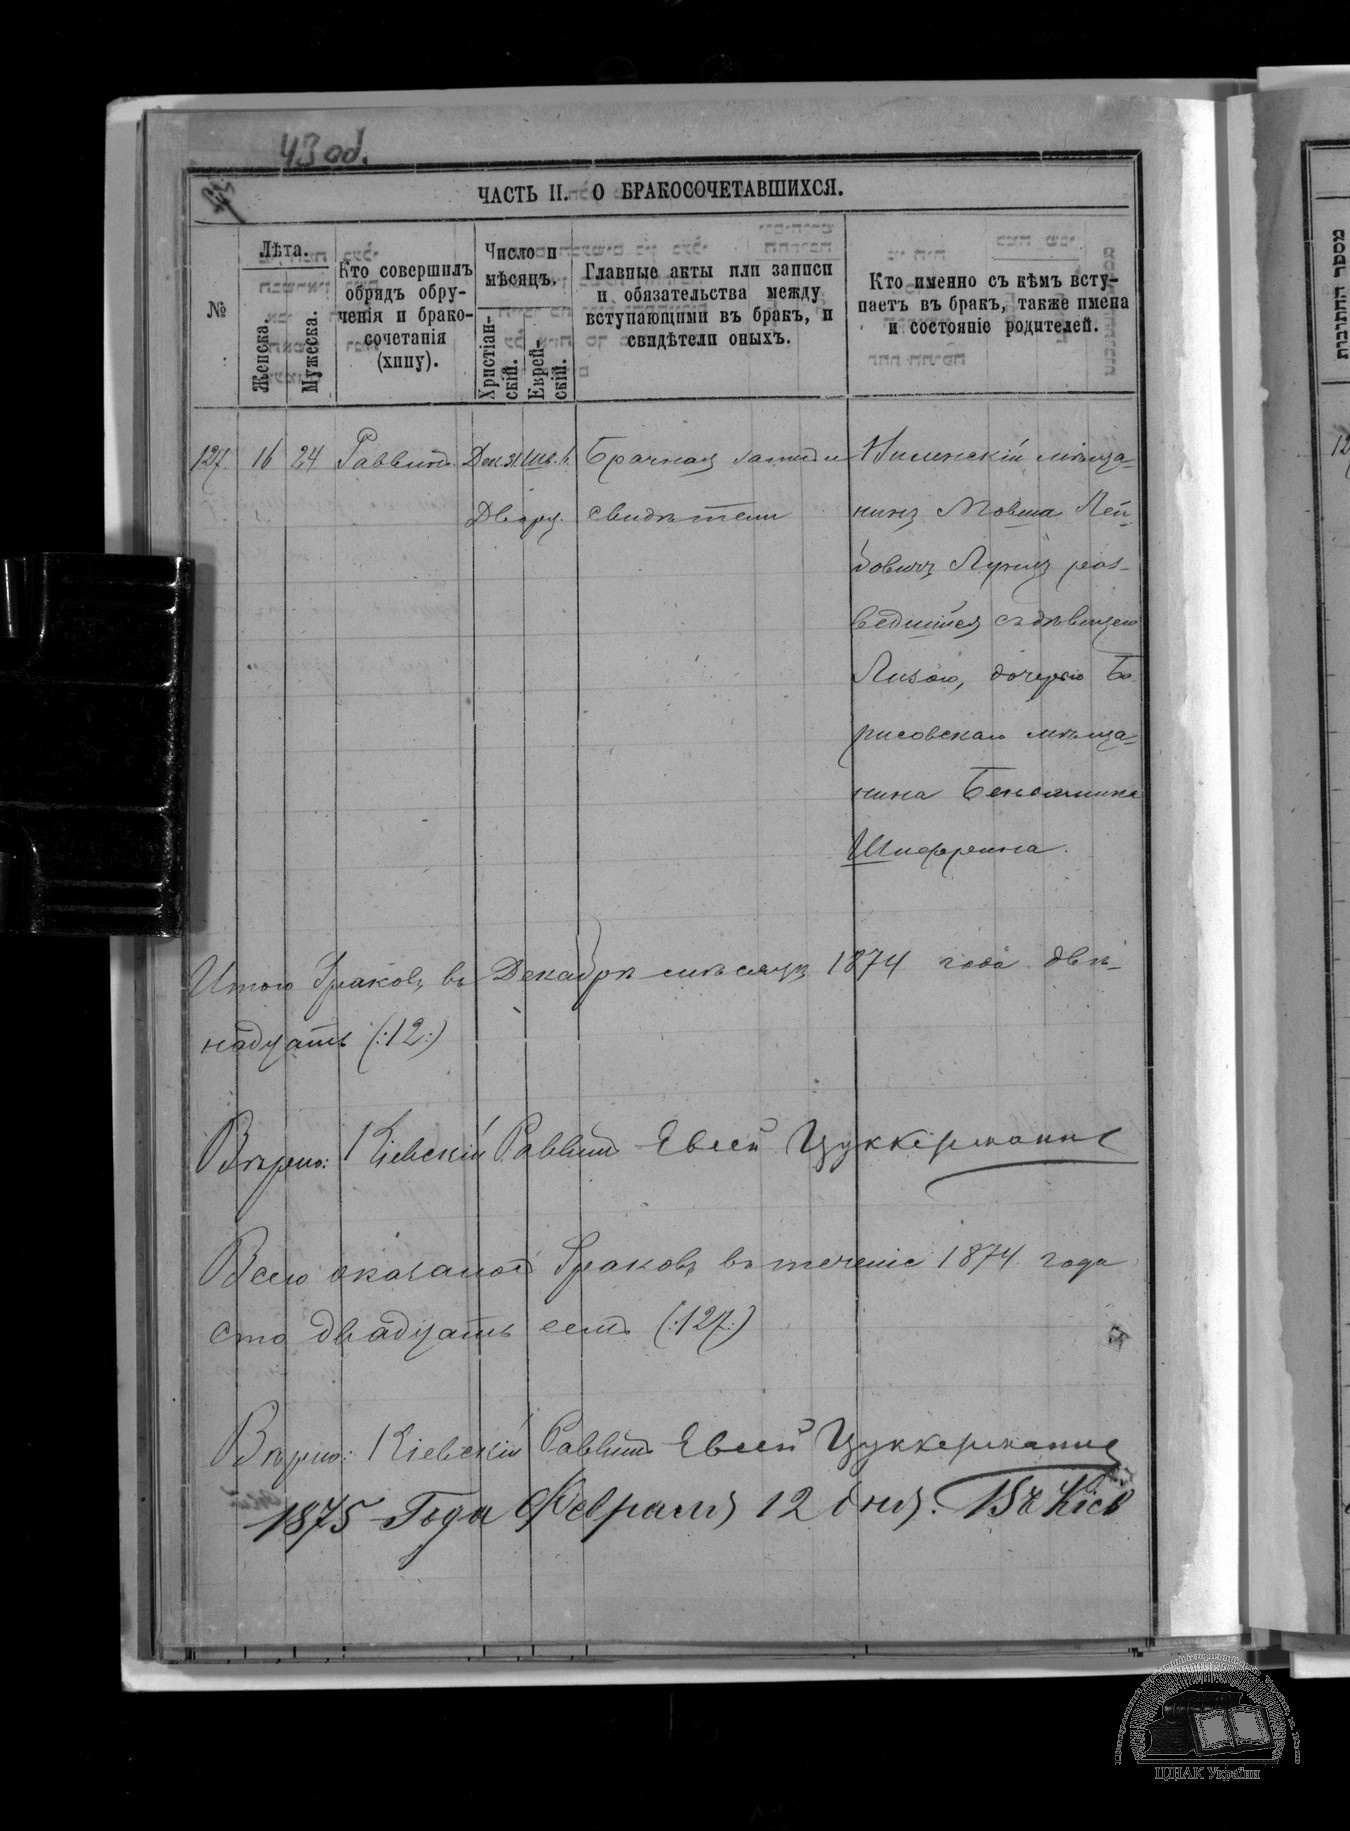 43 об.
ЧАСТЬ II. О БРАКОСОЧЕТАВШИХСЯ.
№
Лѣта.
Женска.
Мужеска.
Кто совершилъ
обрядъ обру-
ченія и брако-
сочетанія
(хипу).
Число и
мѣсяцъ.
Христіан-
скій.
Еврей-
скій.
Главные акты или записи
и обязательства между
вступающими въ бракъ, и
свидѣтели оныхъ.
Кто именно съ кѣмъ всту-
паетъ въ бракъ, также имена
и состояніе родителей.
127. 16 24 Раввинъ. Дек. 31. Шв. Брачная запись и
свидѣтели
мѣща-
нинъ Мовша Лей-
бовичъ раз-
ведшійся съ дѣвицею
Лизою, дочерью Бо-
рисовскаго мѣща-
нина Беньямина
Шифрина.
Итого браковъ въ Декабрѣ мѣсяцѣ 1874 года двѣ-
надцать (:12:)
Вѣрно: Кіевскій Раввинъ Евсей Цуккерманъ
Всего оказалось браковъ въ теченіе 1874 года
сто двадцать семь (:127:)
Вѣрно: Кіевскій Раввинъ Евсей Цуккерманъ
1875 Года Февраля 12 дня. Въ Кіев
ЦДІАК України